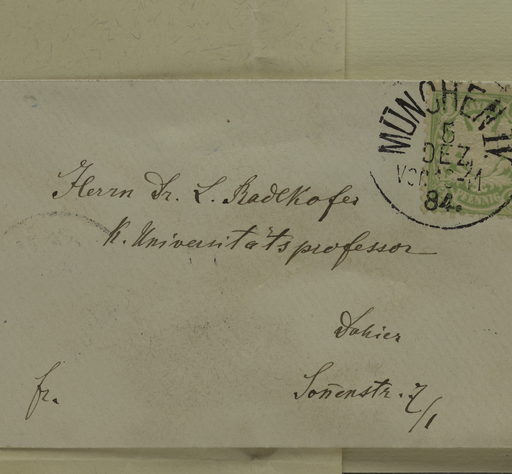 MÜNCHEN IV
5
DEZ.
VOR 10-11
84.
PFENNIG
Herrn Dr. L. Radlkofer
K. Universitätsprofessor
Dahier
fr.
Sonenstr. 7/1